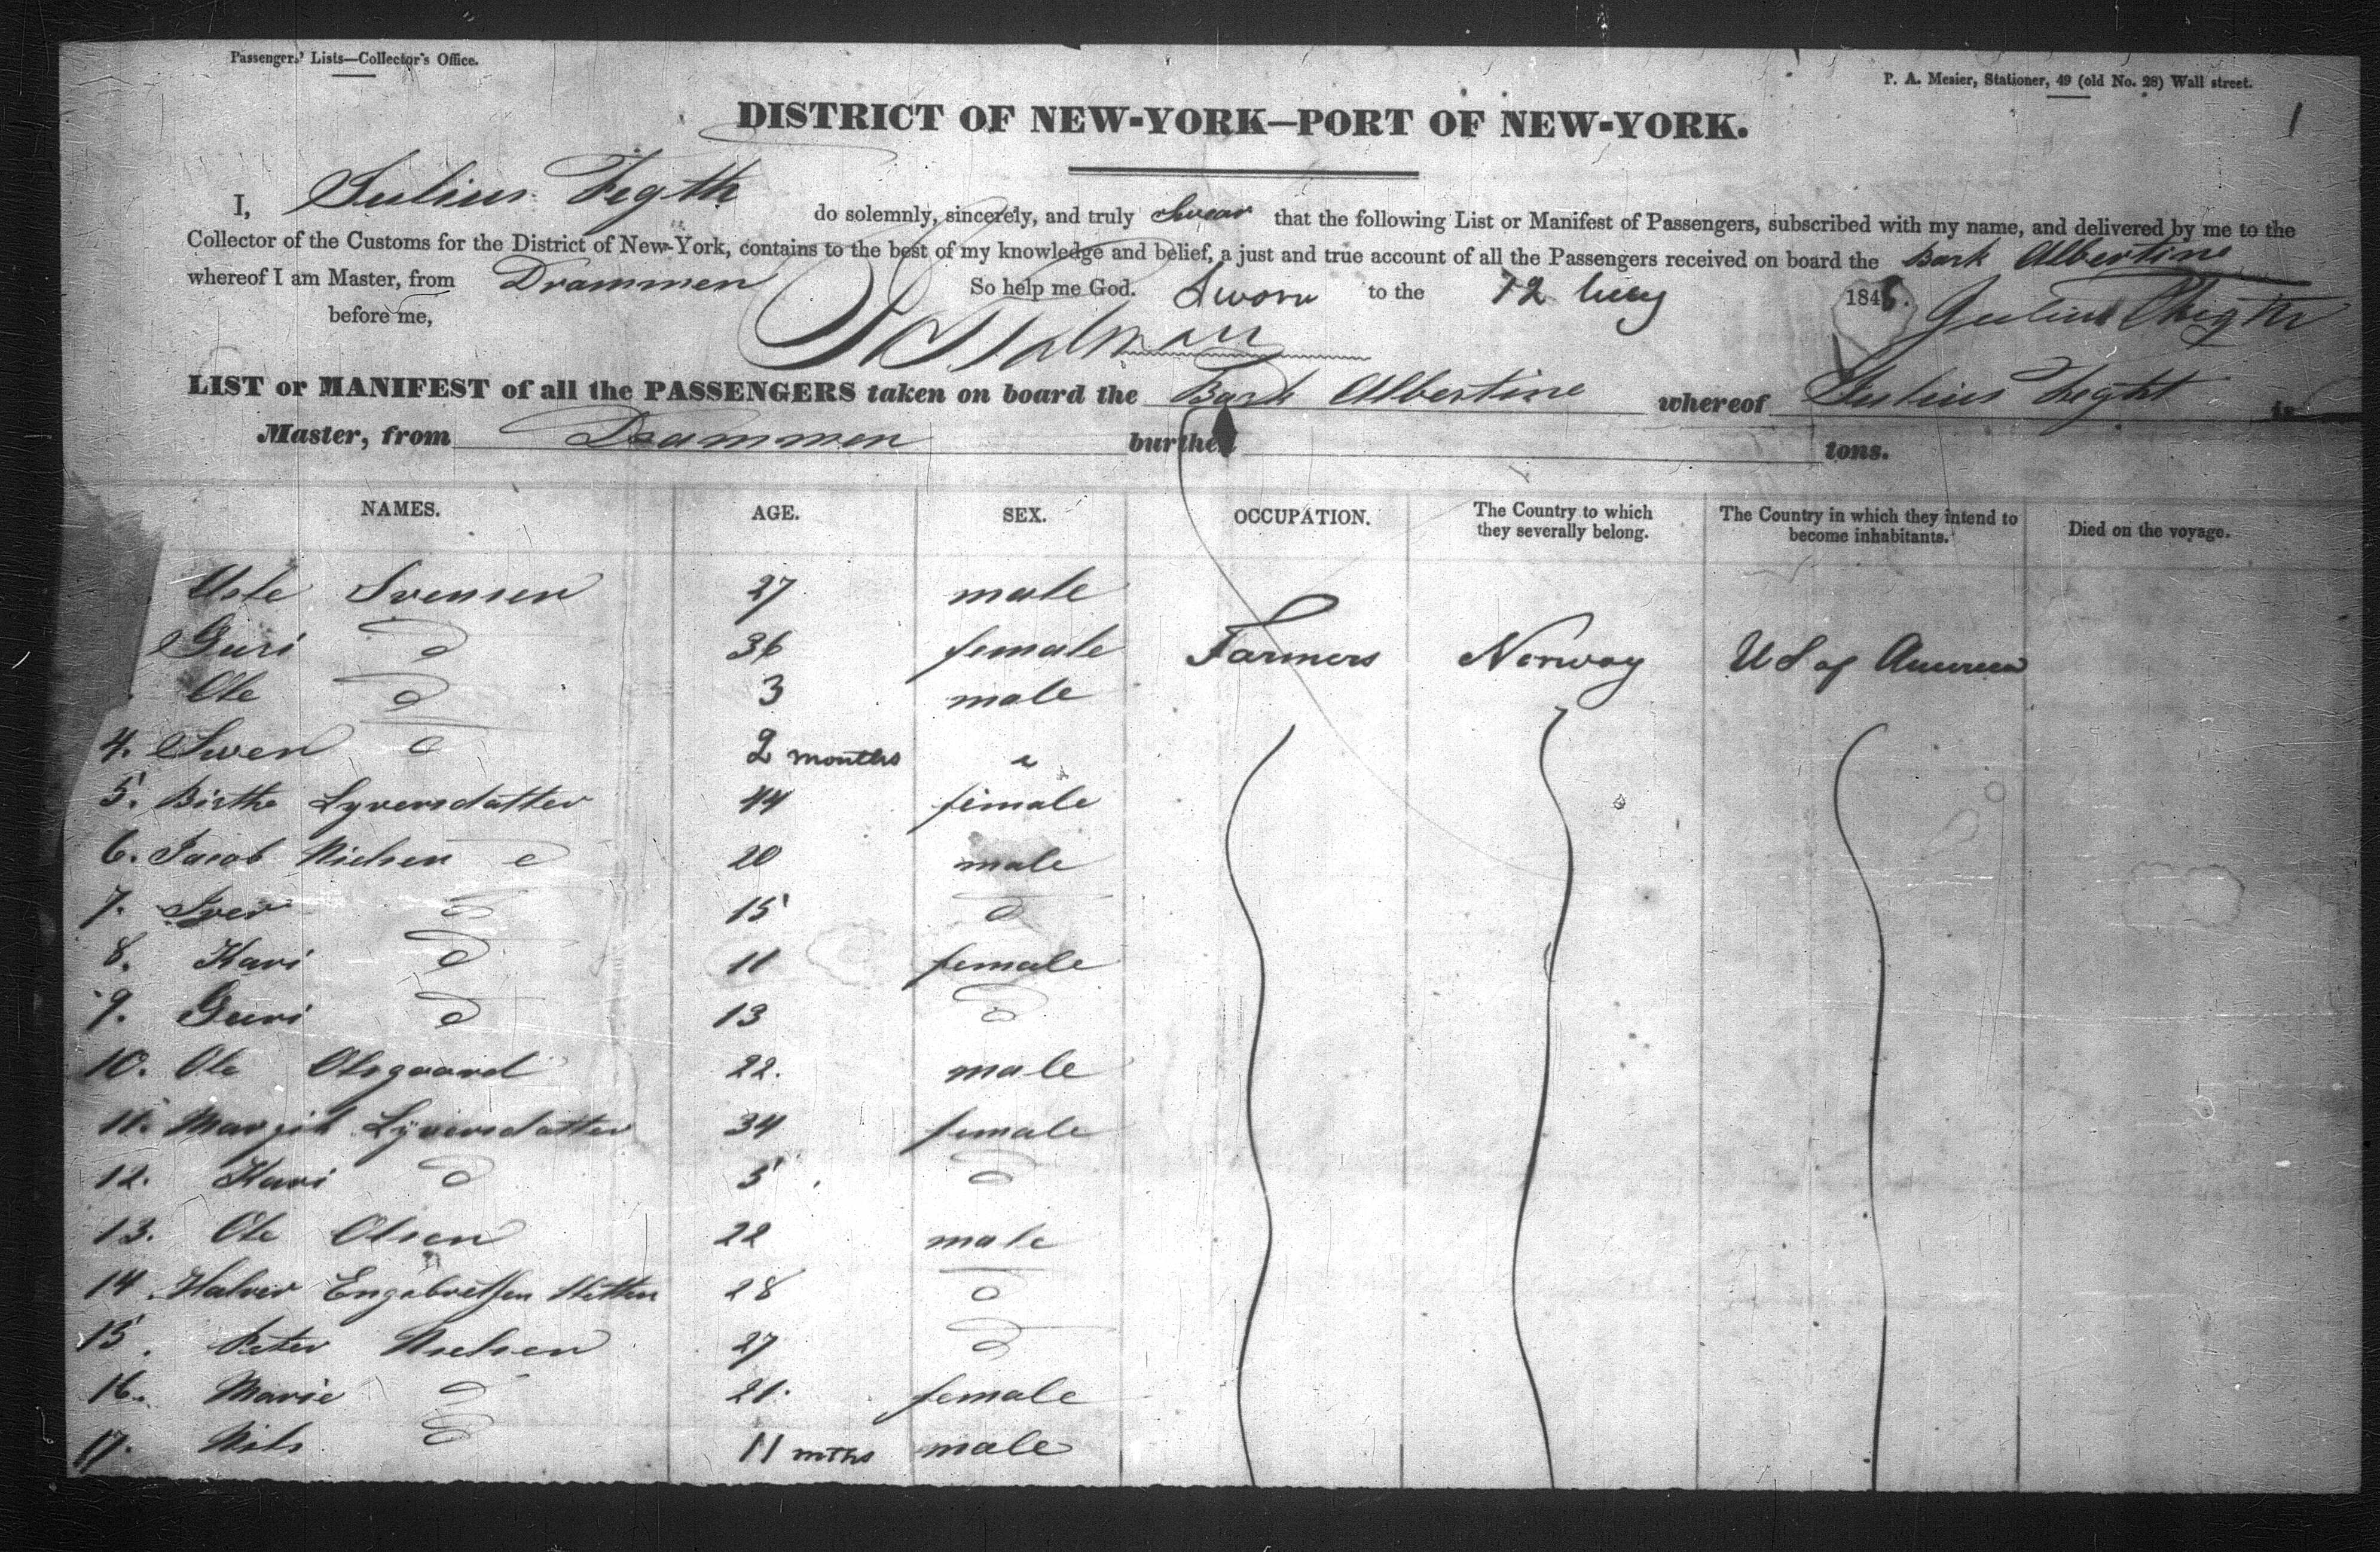 Passengers' Lists—Collector's Office.
P. A. Mesier, Stationer, 49 (old No. 28) Wall street.
1
DISTRICT OF NEW-YORK—PORT OF NEW-YORK.
I, Julius Fegth do solemnly, sincerely, and truly swear that the following List or Manifest of Passengers, subscribed with my name, and delivered by me to the
Collector of the Customs for the District of New-York, contains to the best of my knowledge and belief, a just and true account of all the Passengers received on board the Bark Albertine
whereof I am Master, from Drammen So help me God. Sworn to the 12 184
before me,
LIST or MANIFEST of all the PASSENGERS taken on board the Bark Albertine whereof Julius Feght is
Master, from Drammen burthen tons.
NAMES. AGE. SEX. OCCUPATION. The Country to which they severally belong. The Country in which they intend to become inhabitants. Died on the voyage.
Svensen 27 male
Guri do 36 female Farmers Norway US of America
Ole do 3 male
4. Swen do 2 months
5. Birthe Lyversdatter 44 female
6. Jacob Nielsen 20 male
7. Iver do 15 do
8. Kari do 11 female
9. Guri do 13 do
10. Ole Olsgaard 22. male
11. Margit Lyversdatter 34 female
12. Kari do 5 do
13. Ole Olsen 22 male
14. Halvor Engebretsen 28 do
15. Peter Nielsen 27 do
16. Marie do 21. female
17. Nils do 11 mths male